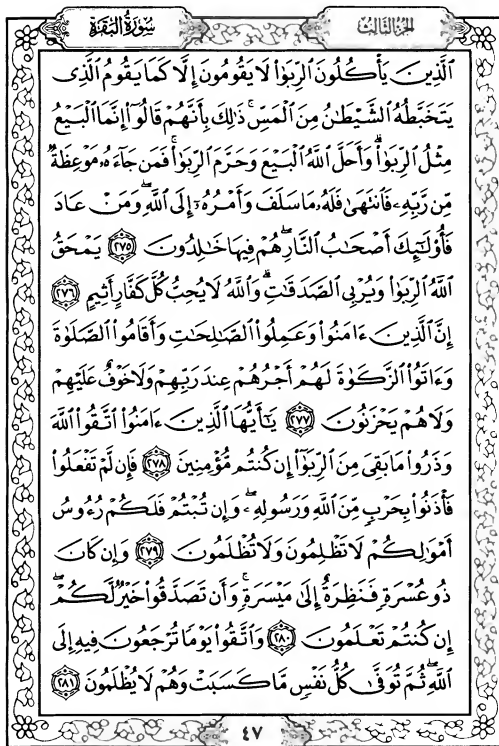 الجزء الثالث
سورة البقرة
الَّذِينَ يَأْكُلُونَ الرِّبَوٰا۟ لَا يَقُومُونَ إِلَّا كَمَا يَقُومُ الَّذِى
يَتَخَبَّطُهُ الشَّيْطَـٰنُ مِنَ الْمَسِّ ۚ ذَٰلِكَ بِأَنَّهُمْ قَالُوٓا۟ إِنَّمَا الْبَيْعُ
مِثْلُ الرِّبَوٰا۟ ۗ وَأَحَلَّ اللَّهُ الْبَيْعَ وَحَرَّمَ الرِّبَوٰا۟ ۚ فَمَن جَآءَهُۥ مَوْعِظَةٌ
مِّن رَّبِّهِۦ فَٱنتَهَىٰ فَلَهُۥ مَا سَلَفَ وَأَمْرُهُۥٓ إِلَى اللَّهِ ۖ وَمَنْ عَادَ
فَأُو۟لَـٰٓئِكَ أَصْحَـٰبُ النَّارِ ۖ هُمْ فِيهَا خَـٰلِدُونَ ٢٧٥ يَمْحَقُ
اللَّهُ الرِّبَوٰا۟ وَيُرْبِى الصَّدَقَـٰتِ ۗ وَاللَّهُ لَا يُحِبُّ كُلَّ كَفَّارٍ أَثِيمٍ ٢٧٦
إِنَّ الَّذِينَ ءَامَنُوا۟ وَعَمِلُوا۟ الصَّـٰلِحَـٰتِ وَأَقَامُوا۟ الصَّلَوٰةَ
وَءَاتَوُا۟ الزَّكَوٰةَ لَهُمْ أَجْرُهُمْ عِندَ رَبِّهِمْ وَلَا خَوْفٌ عَلَيْهِمْ
وَلَا هُمْ يَحْزَنُونَ ٢٧٧ يَـٰٓأَيُّهَا الَّذِينَ ءَامَنُوا۟ اتَّقُوا۟ اللَّهَ
وَذَرُوا۟ مَا بَقِىَ مِنَ الرِّبَوٰٓا۟ إِن كُنتُم مُّؤْمِنِينَ ٢٧٨ فَإِن لَّمْ تَفْعَلُوا۟
فَأْذَنُوا۟ بِحَرْبٍ مِّنَ اللَّهِ وَرَسُولِهِۦ ۖ وَإِن تُبْتُمْ فَلَكُمْ رُءُوسُ
أَمْوَٰلِكُمْ لَا تَظْلِمُونَ وَلَا تُظْلَمُونَ ٢٧٩ وَإِن كَانَ
ذُو عُسْرَةٍ فَنَظِرَةٌ إِلَىٰ مَيْسَرَةٍ ۚ وَأَن تَصَدَّقُوا۟ خَيْرٌ لَّكُمْ ۖ
إِن كُنتُمْ تَعْلَمُونَ ٢٨٠ وَاتَّقُوا۟ يَوْمًا تُرْجَعُونَ فِيهِ إِلَى
اللَّهِ ۖ ثُمَّ تُوَفَّىٰ كُلُّ نَفْسٍ مَّا كَسَبَتْ وَهُمْ لَا يُظْلَمُونَ ٢٨١
٤٧